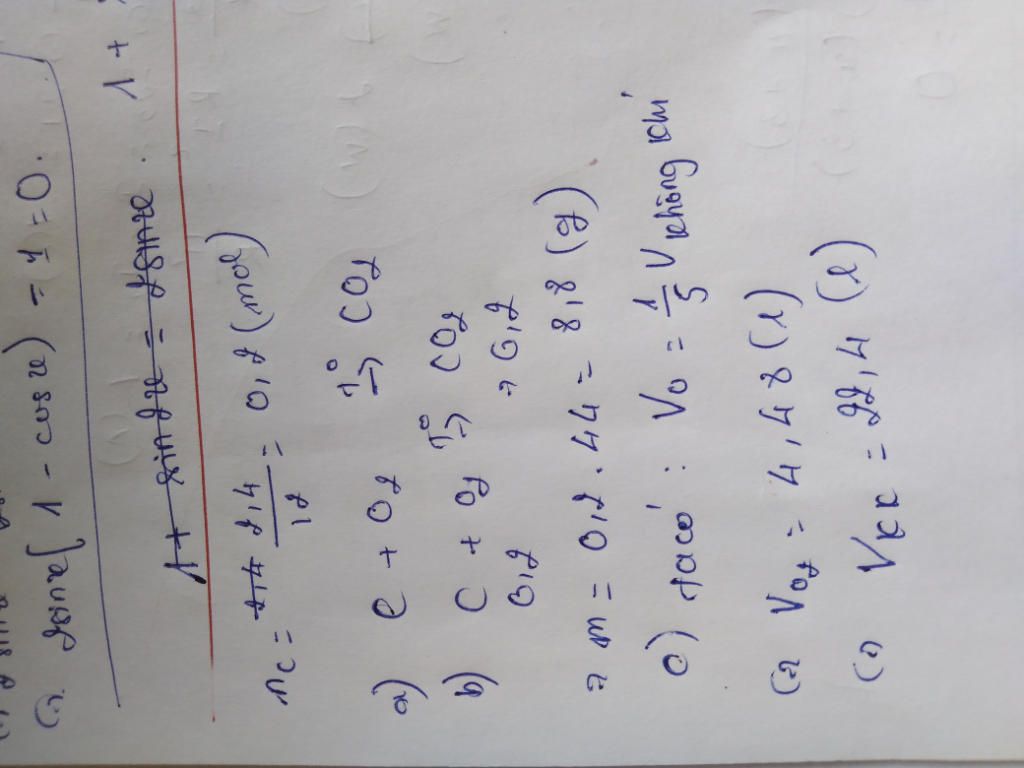 (=) 2sinx[1 - cosx) = 1 = 0.
1 + sin2x = 2sinx . 1 +
n_C = 2,4 2,4/12 = 0,2 (mol)
a) C + O2 t°→ CO2
b) C + O2 t°→ CO2
0,2 → 0,2
→ m = 0,2 . 44 = 8,8 (g)
c) Ta có : VO = 1/5 V không khí
(=) VO2 = 4,48 (l)
(=) VKK = 22,4 (l)